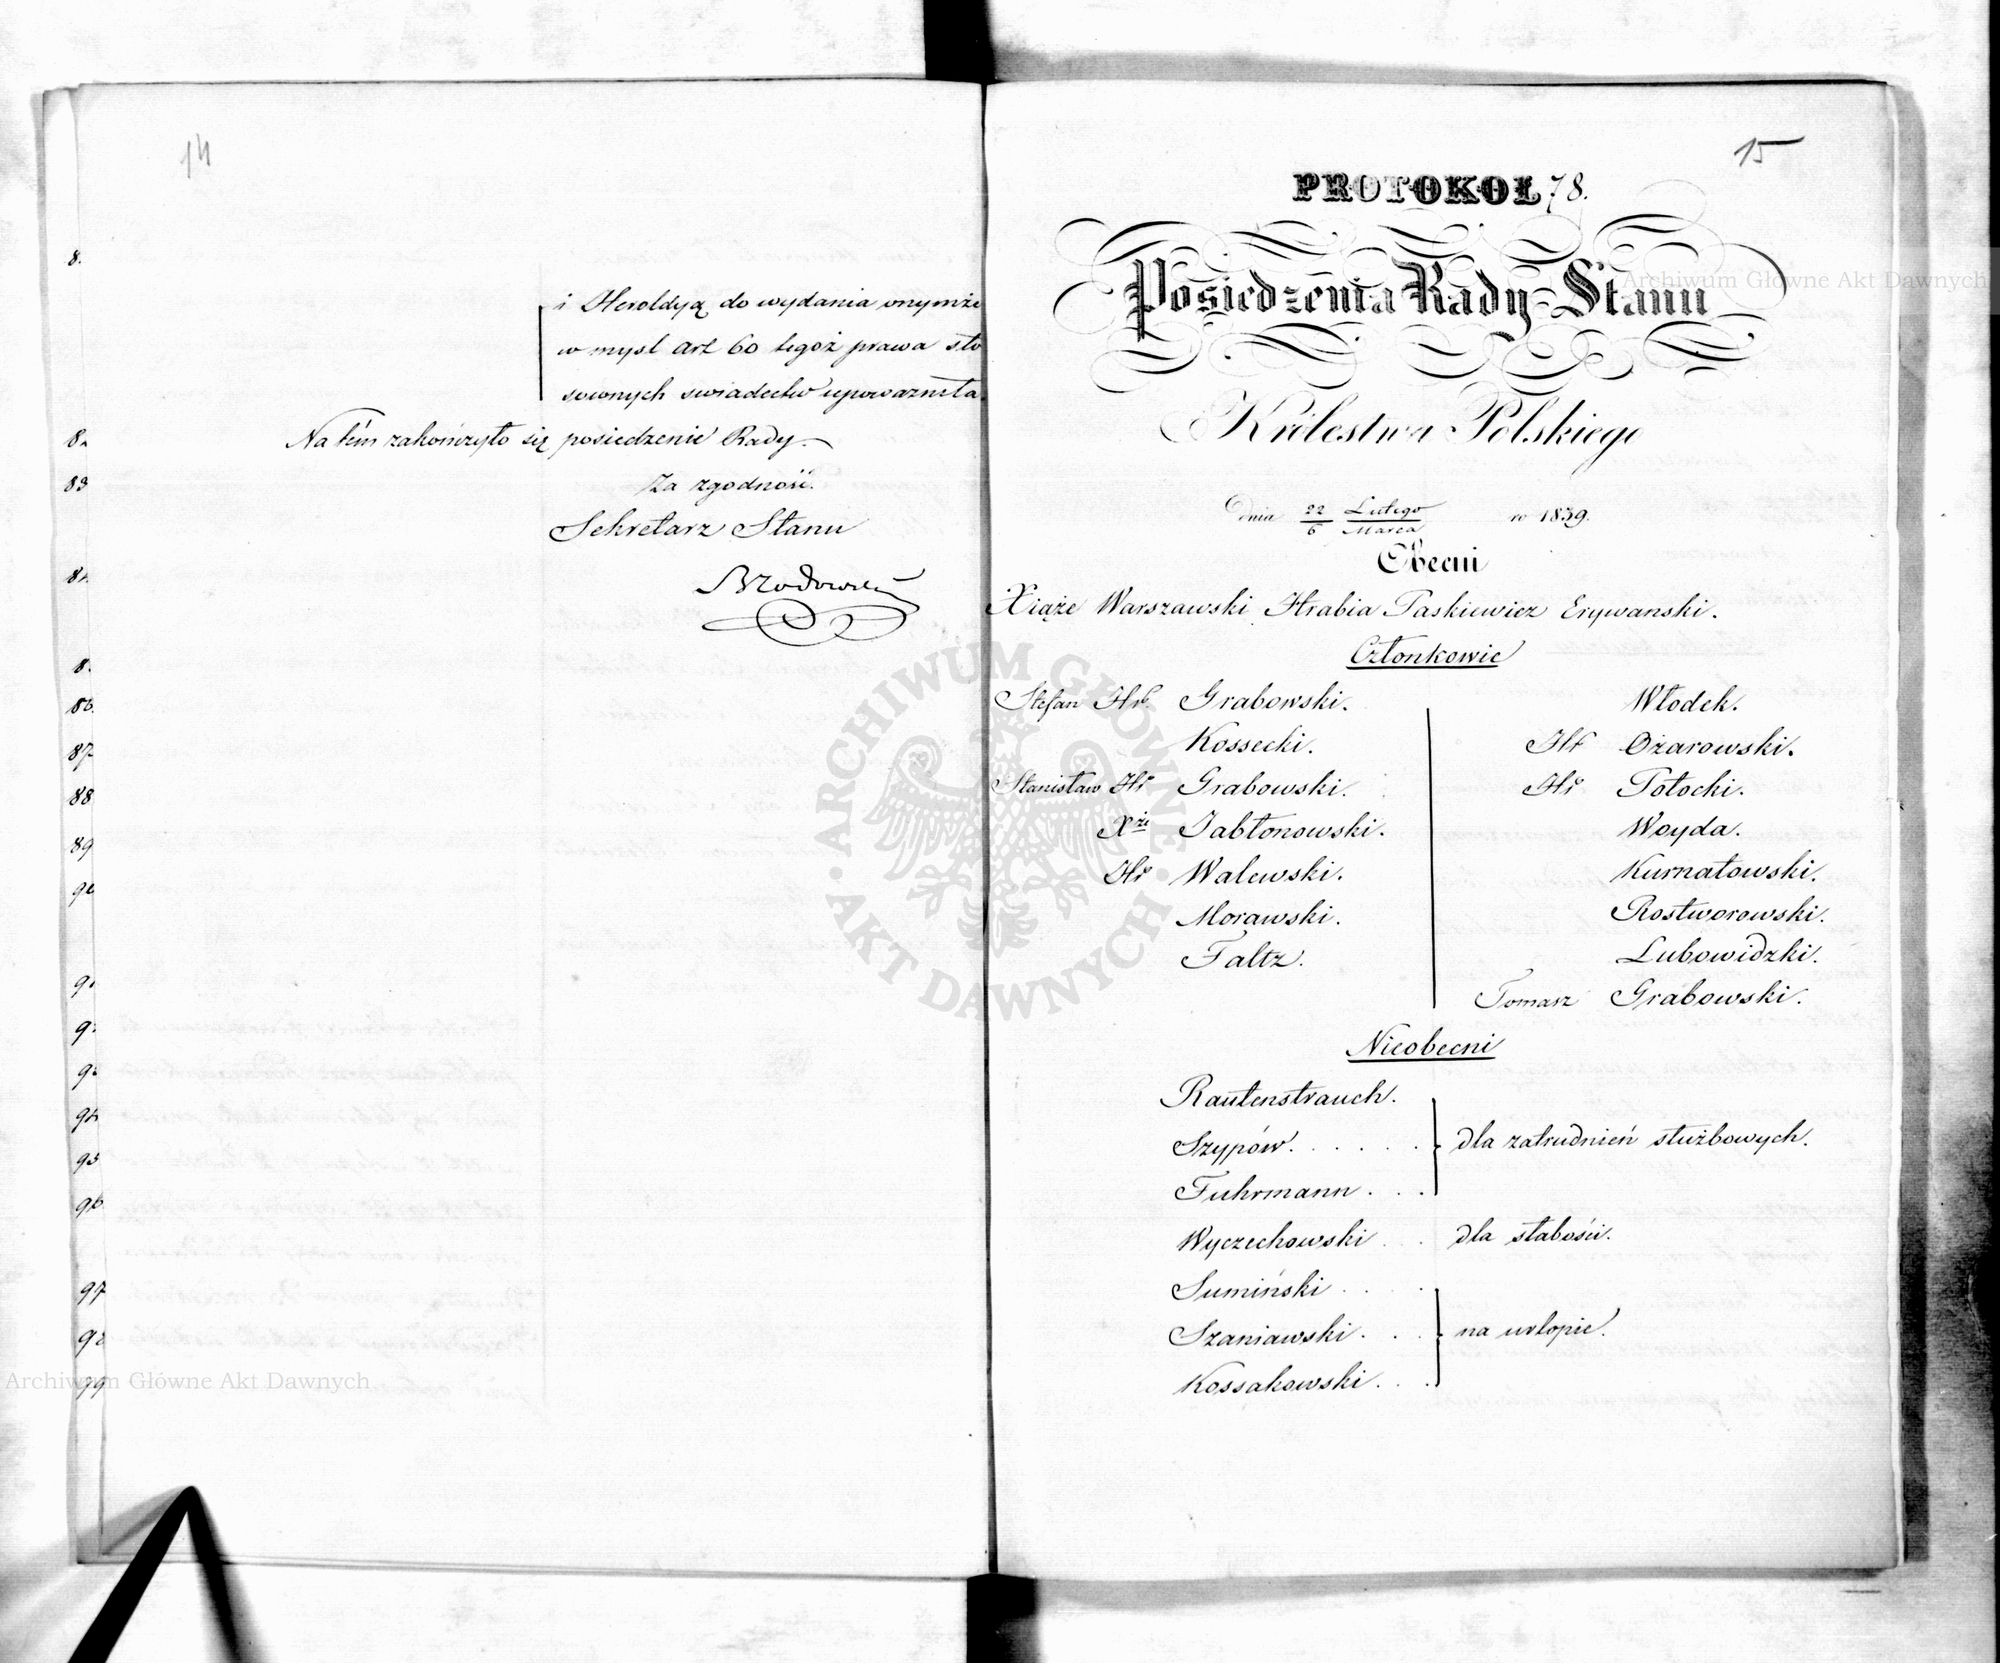 14
i Heroldyą do wydania onymże
w mysl art 60 tegoż prawa sto
sownych swiadectw upoważniła.
Na tém zakończyło się posiedzenie Rady.
Za zgodność.
Sekretarz Stanu
Brodowski
8.
83
86.
87
88
89
94
95
96
97
99
15
PROTOKOŁ 78.
Posiedzenia Rady Stanu
Królestwa Polskiego
Dnia 22/6 Lutego/Marca r 1839.
Obecni
Xiąże Warszawski Hrabia Paskiewicz Erywanski.
Członkowie
Stefan Hr. Grabowski.
Kossecki.
Stanisław Hr Grabowski.
Xże Jabłonowski.
Hr Walewski.
Morawski.
Faltz.
Włodek.
Hr Ożarowski.
Hr Potocki.
Woyda.
Kurnatowski.
Rostworowski.
Lubowidzki.
Tomasz Grabowski.
Nieobecni
Rautenstrauch.
Szypów. . . . . .
Fuhrmann . . .
dla zatrudnień służbowych.
Wyczechowski . . dla słabości.
Sumiński . . . .
Szaniawski. . .
Kossakowski. . .
na urlopie.
Archiwum Główne Akt Dawnych
ARCHIWUM GŁÓWNE AKT DAWNYCH
Archiwum Główne Akt Dawnych